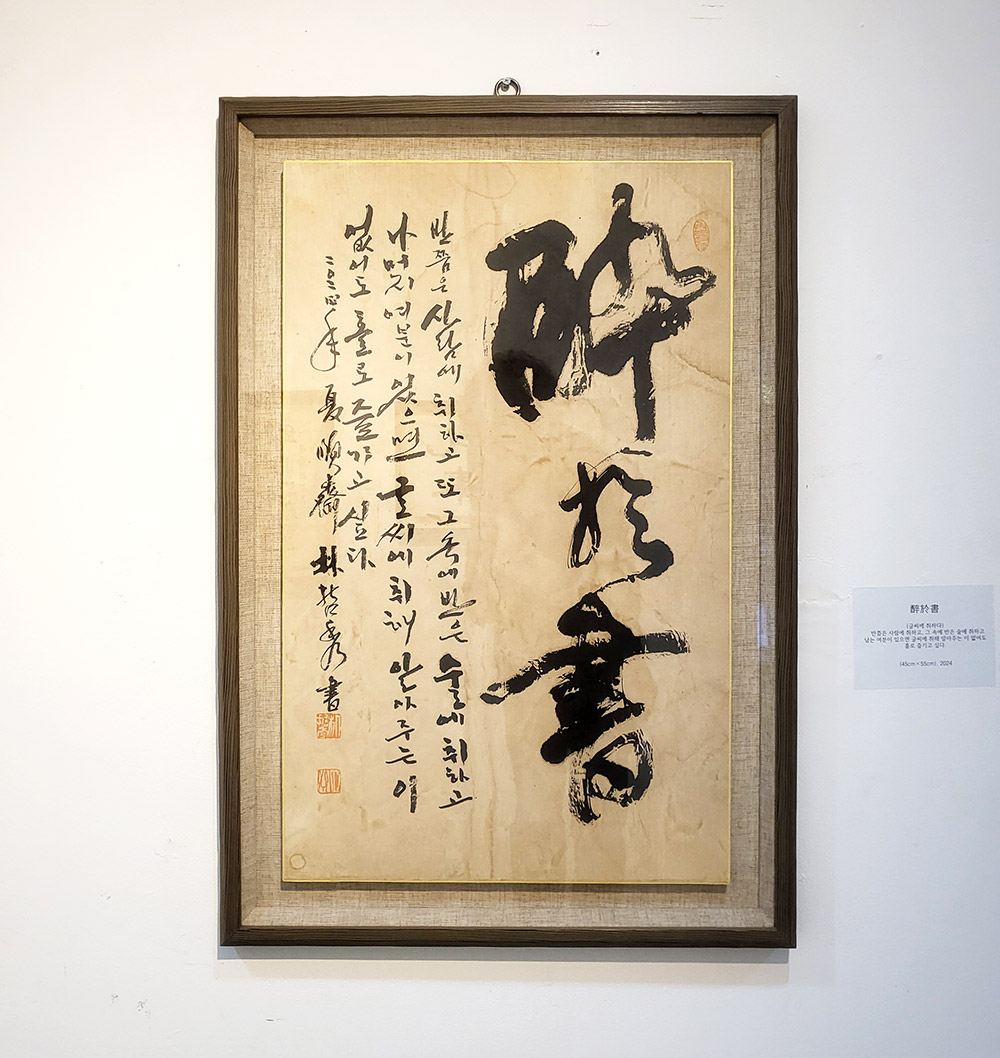 醉於書
반쯤은 사람에 취하고 또 그 속에 반은 술에 취하고
나머지 여분이 있으면 글씨에 취해 알아주는 이
없어도 홀로 즐기고 싶다
二〇二四年 夏 順齋 林哲秀 書
醉於書
(글씨에 취하다)
반쯤은 사람에 취하고, 그 속에 반은 술에 취하고
남는 여분이 있으면 글씨에 취해 알아주는 이 없어도
홀로 즐기고 싶다.
(45cm × 55cm), 2024